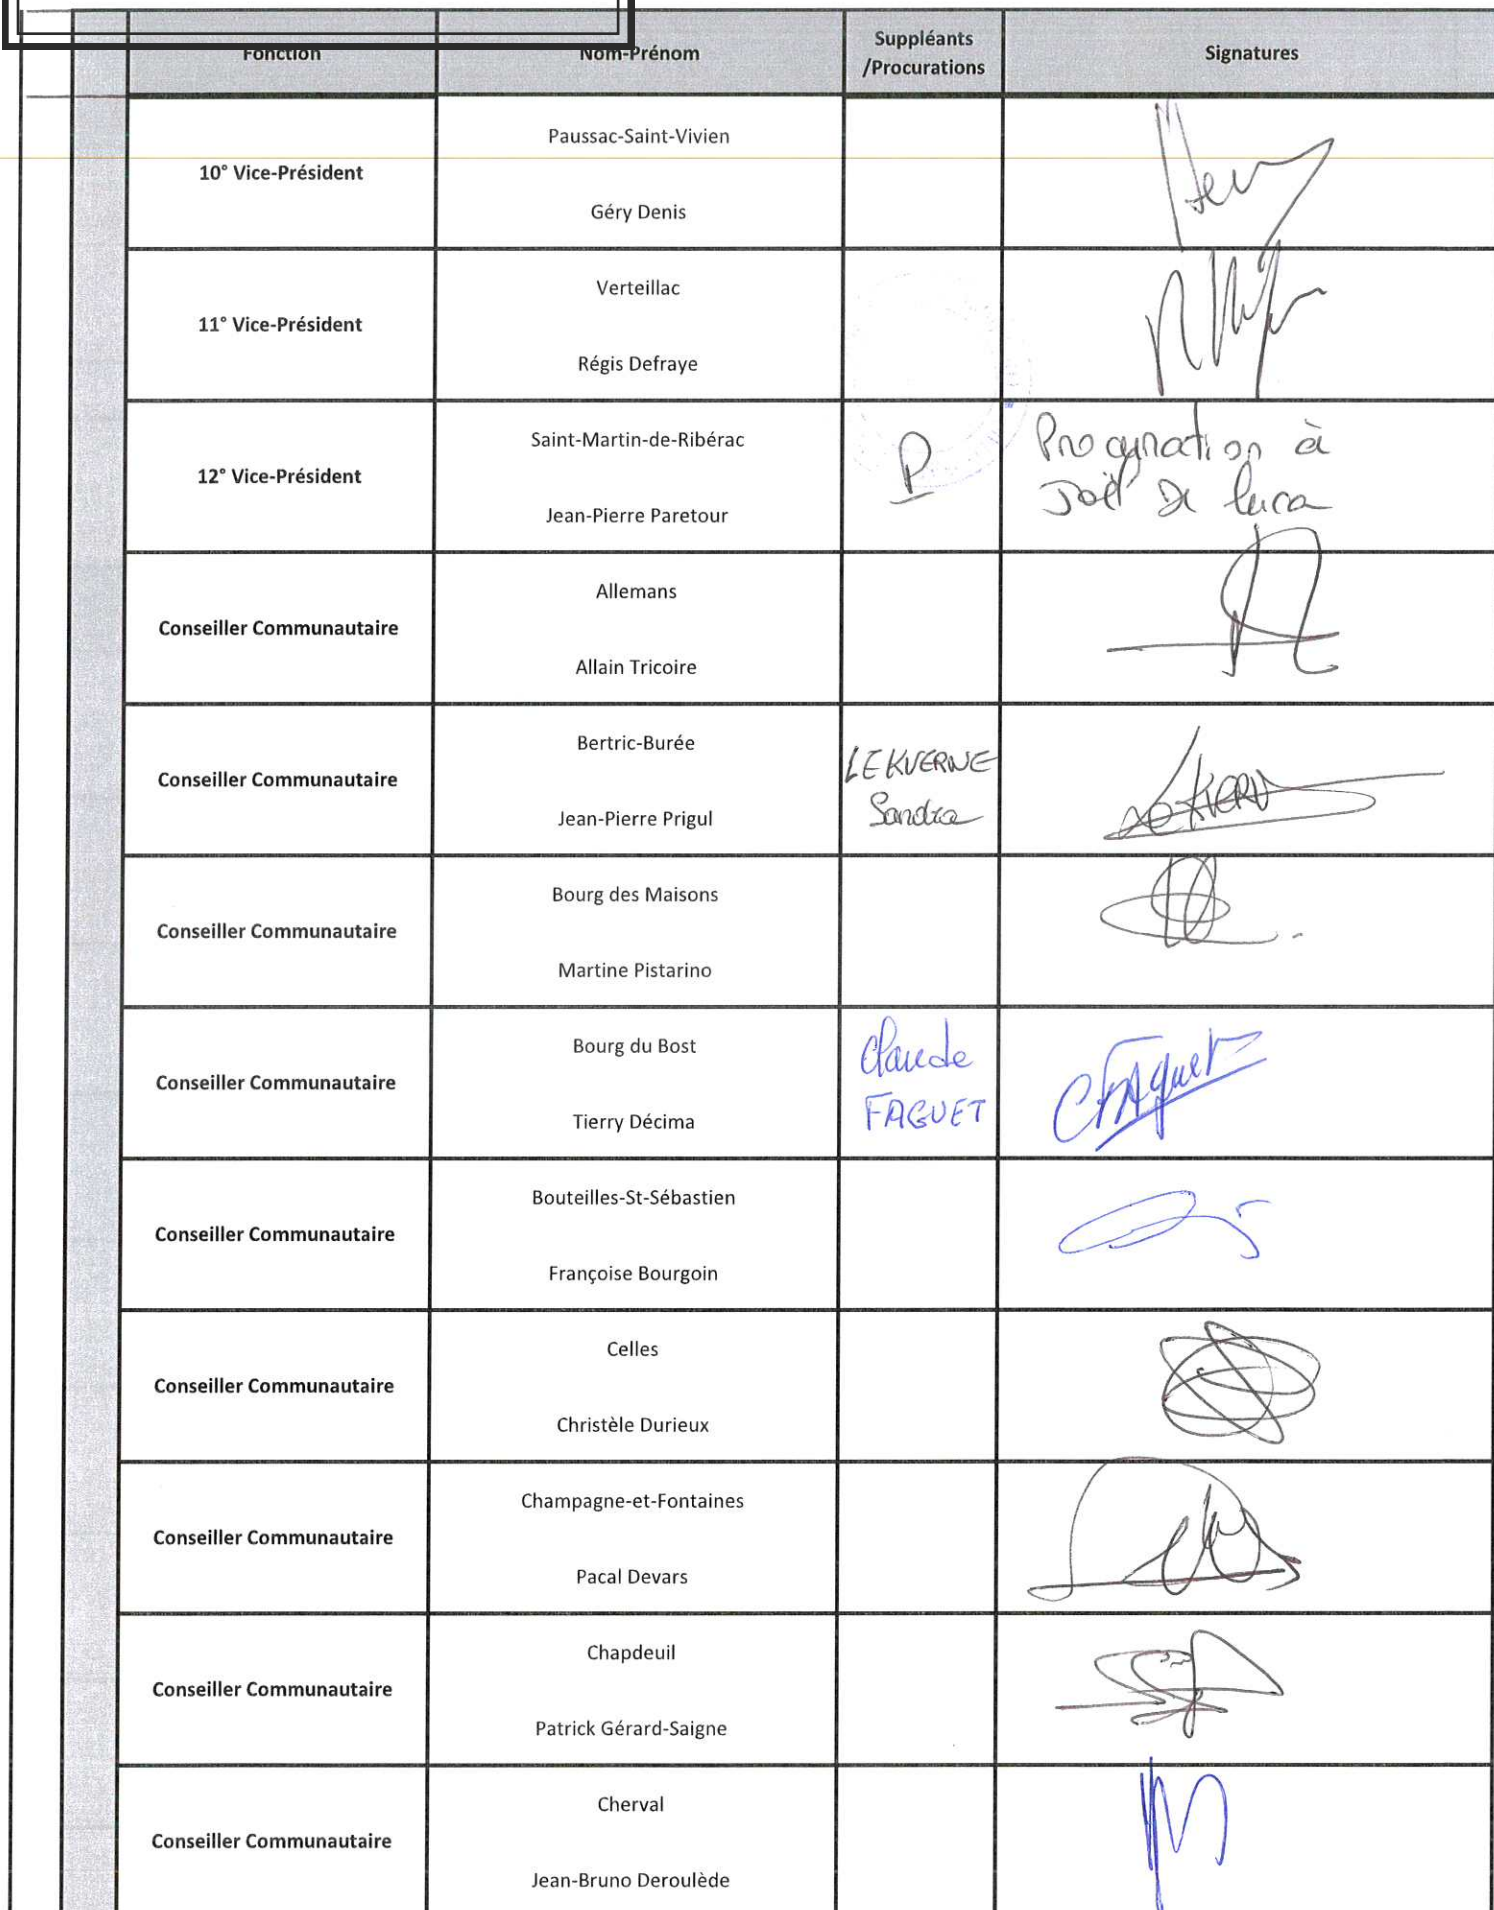 Fonction Nom-Prénom Suppléants /Procurations Signatures
10° Vice-Président
Paussac-Saint-Vivien
Géry Denis
11° Vice-Président
Verteillac
Régis Defraye
12° Vice-Président
Saint-Martin-de-Ribérac
Jean-Pierre Paretour
P
Procuration à
Joël De Luca
Conseiller Communautaire
Allemans
Allain Tricoire
Conseiller Communautaire
Bertric-Burée
Jean-Pierre Prigul
LEKVERNE
Sandra
Conseiller Communautaire
Bourg des Maisons
Martine Pistarino
Conseiller Communautaire
Bourg du Bost
Tierry Décima
Claude
FAGUET
CFAguet
Conseiller Communautaire
Bouteilles-St-Sébastien
Françoise Bourgoin
Conseiller Communautaire
Celles
Christèle Durieux
Conseiller Communautaire
Champagne-et-Fontaines
Pacal Devars
Conseiller Communautaire
Chapdeuil
Patrick Gérard-Saigne
Conseiller Communautaire
Cherval
Jean-Bruno Deroulède